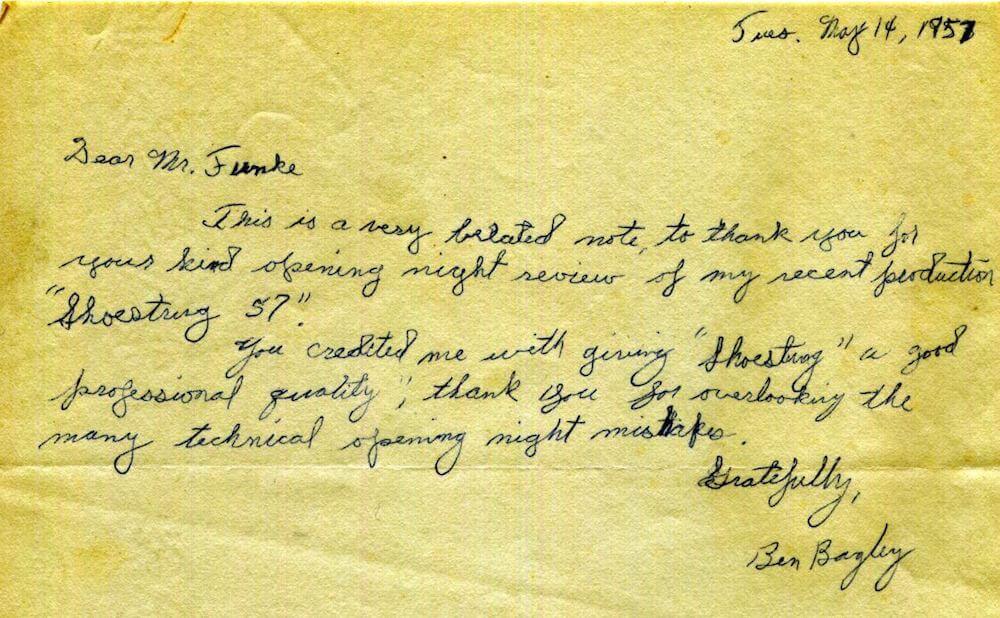 Tues. May 14, 1957
Dear Mr. Funke
This is a very belated note, to thank you for
your kind opening night review, of my recent production
"Shoestring 57".
You credited me with giving "Shoestring" a good
professional quality", thank you for overlooking the
many technical opening night mistakes.
Gratefully,
Ben Bagley